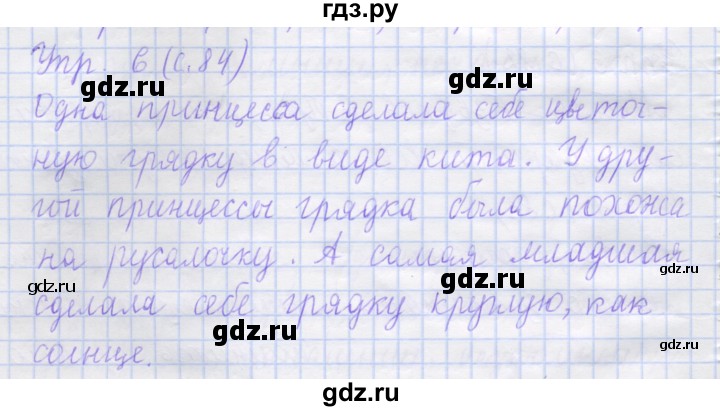 гдз.ру
Упр. 6 (с.84)
gdz.ru
gdz.ru
Одна принцесса сделала себе цветоч-
ную грядку в виде кита. У дру-
гой принцессы грядка была похожа
на русалочку. А самая младшая
gdz.ru
gdz.ru
сделала себе грядку круглую, как
gdz.ru
gdz.ru
солнце.
gdz.ru